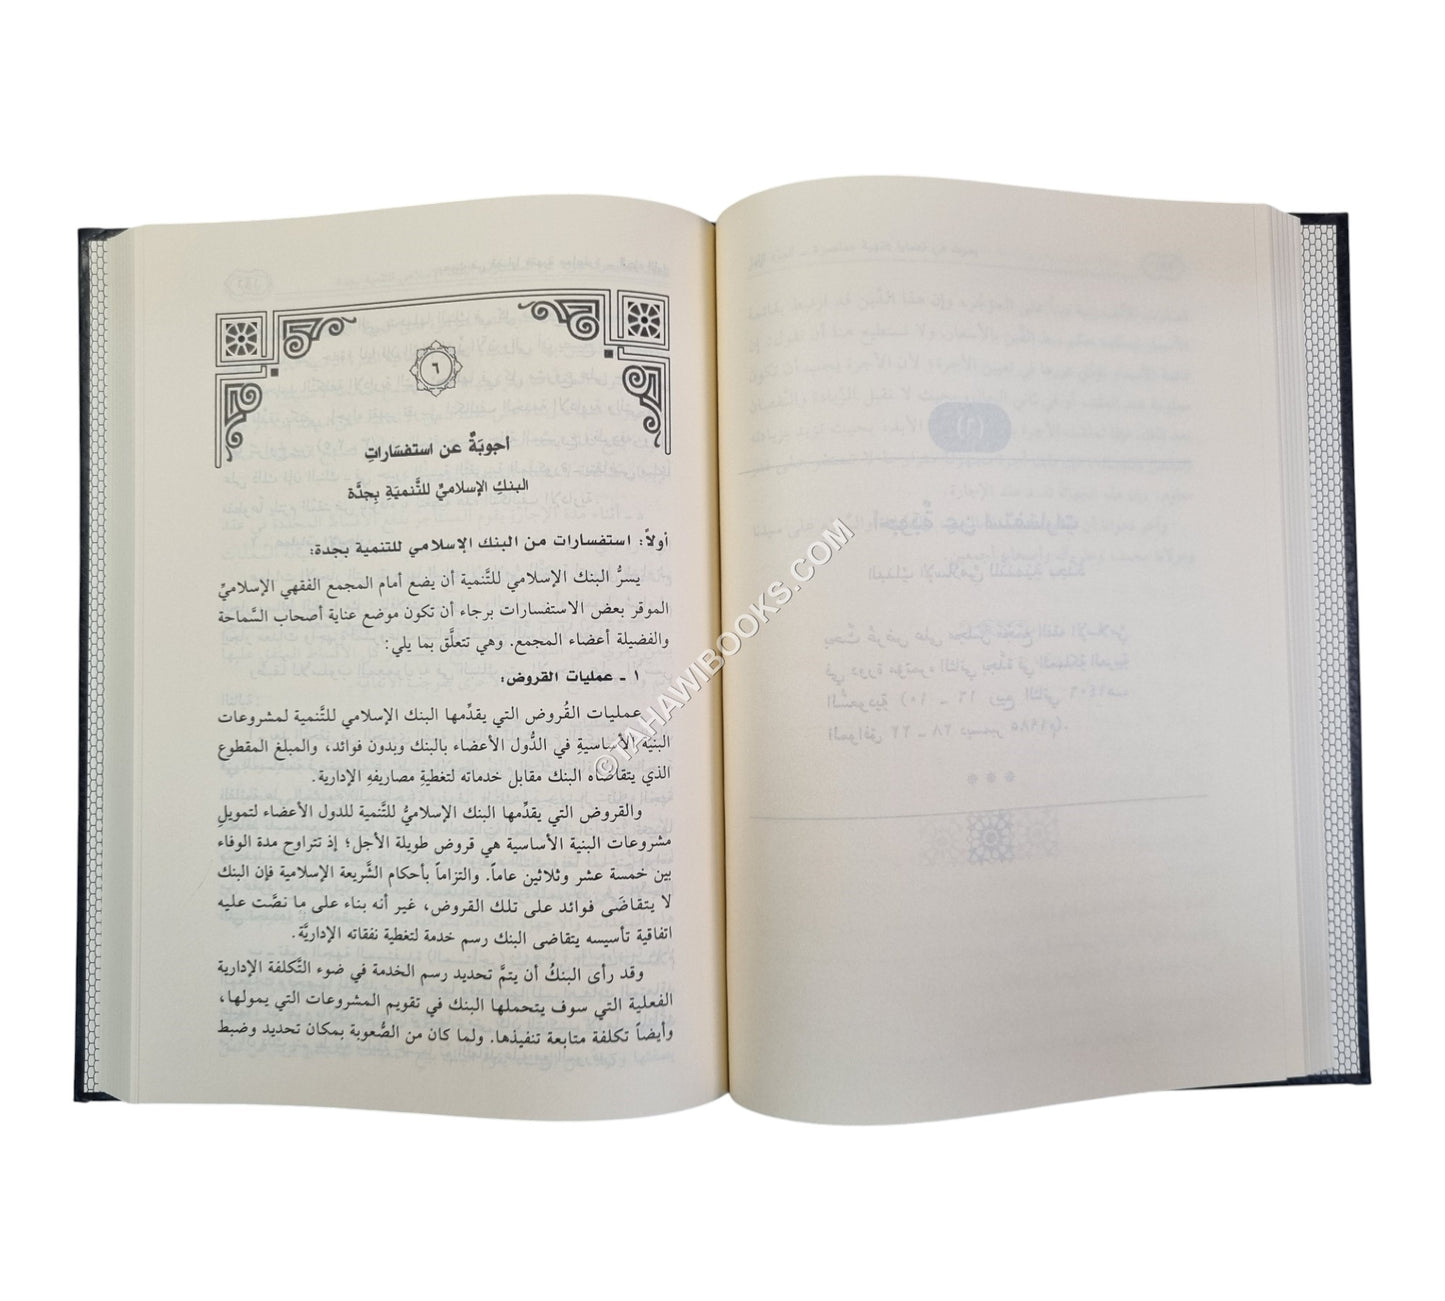 ٦
أجوبَةٌ عن استفسَاراتِ
البنكِ الإسلاميِّ للتَّنميَةِ بِجدَّة
أولاً: استفسارات من البنك الإسلامي للتنمية بجدة:
يسرُّ البنك الإسلامي للتَّنمية أن يضع أمام المجمع الفقهي الإسلاميِّ
الموقر بعض الاستفسارات برجاء أن تكون موضع عناية أصحاب السَّماحة
والفضيلة أعضاء المجمع. وهي تتعلَّق بما يلي:
١ ـ عمليات القروض:
عمليات القُروض التي يقدِّمها البنك الإسلامي للتَّنمية لمشروعات
البنية الأساسيةِ في الدُّول الأعضاء بالبنك وبدون فوائد، والمبلغ المقطوع
الذي يتقاضاه البنك مقابل خدماته لتغطيةِ مصاريفهِ الإدارية.
والقروض التي يقدِّمها البنك الإسلاميُّ للتَّنمية للدول الأعضاء لتمويلِ
مشروعات البنية الأساسية هي قروض طويلة الأجل؛ إذ تتراوح مدة الوفاء
بين خمسة عشر وثلاثين عاماً. والتزاماً بأحكام الشَّريعة الإسلامية فإن البنك
لا يتقاضَى فوائد على تلك القروض، غير أنه بناء على ما نصَّت عليه
اتفاقية تأسيسه يتقاضى البنك رسم خدمة لتغطية نفقاته الإداريَّة.
وقد رأى البنكُ أن يتمَّ تحديد رسم الخدمة في ضوء التَّكلفة الإدارية
الفعلية التي سوف يتحملها البنك في تقويم المشروعات التي يمولها،
وأيضاً تكلفة متابعة تنفيذها. ولما كان من الصُّعوبة بمكان تحديد وضبط
©TAHAWIBOOKS.COM